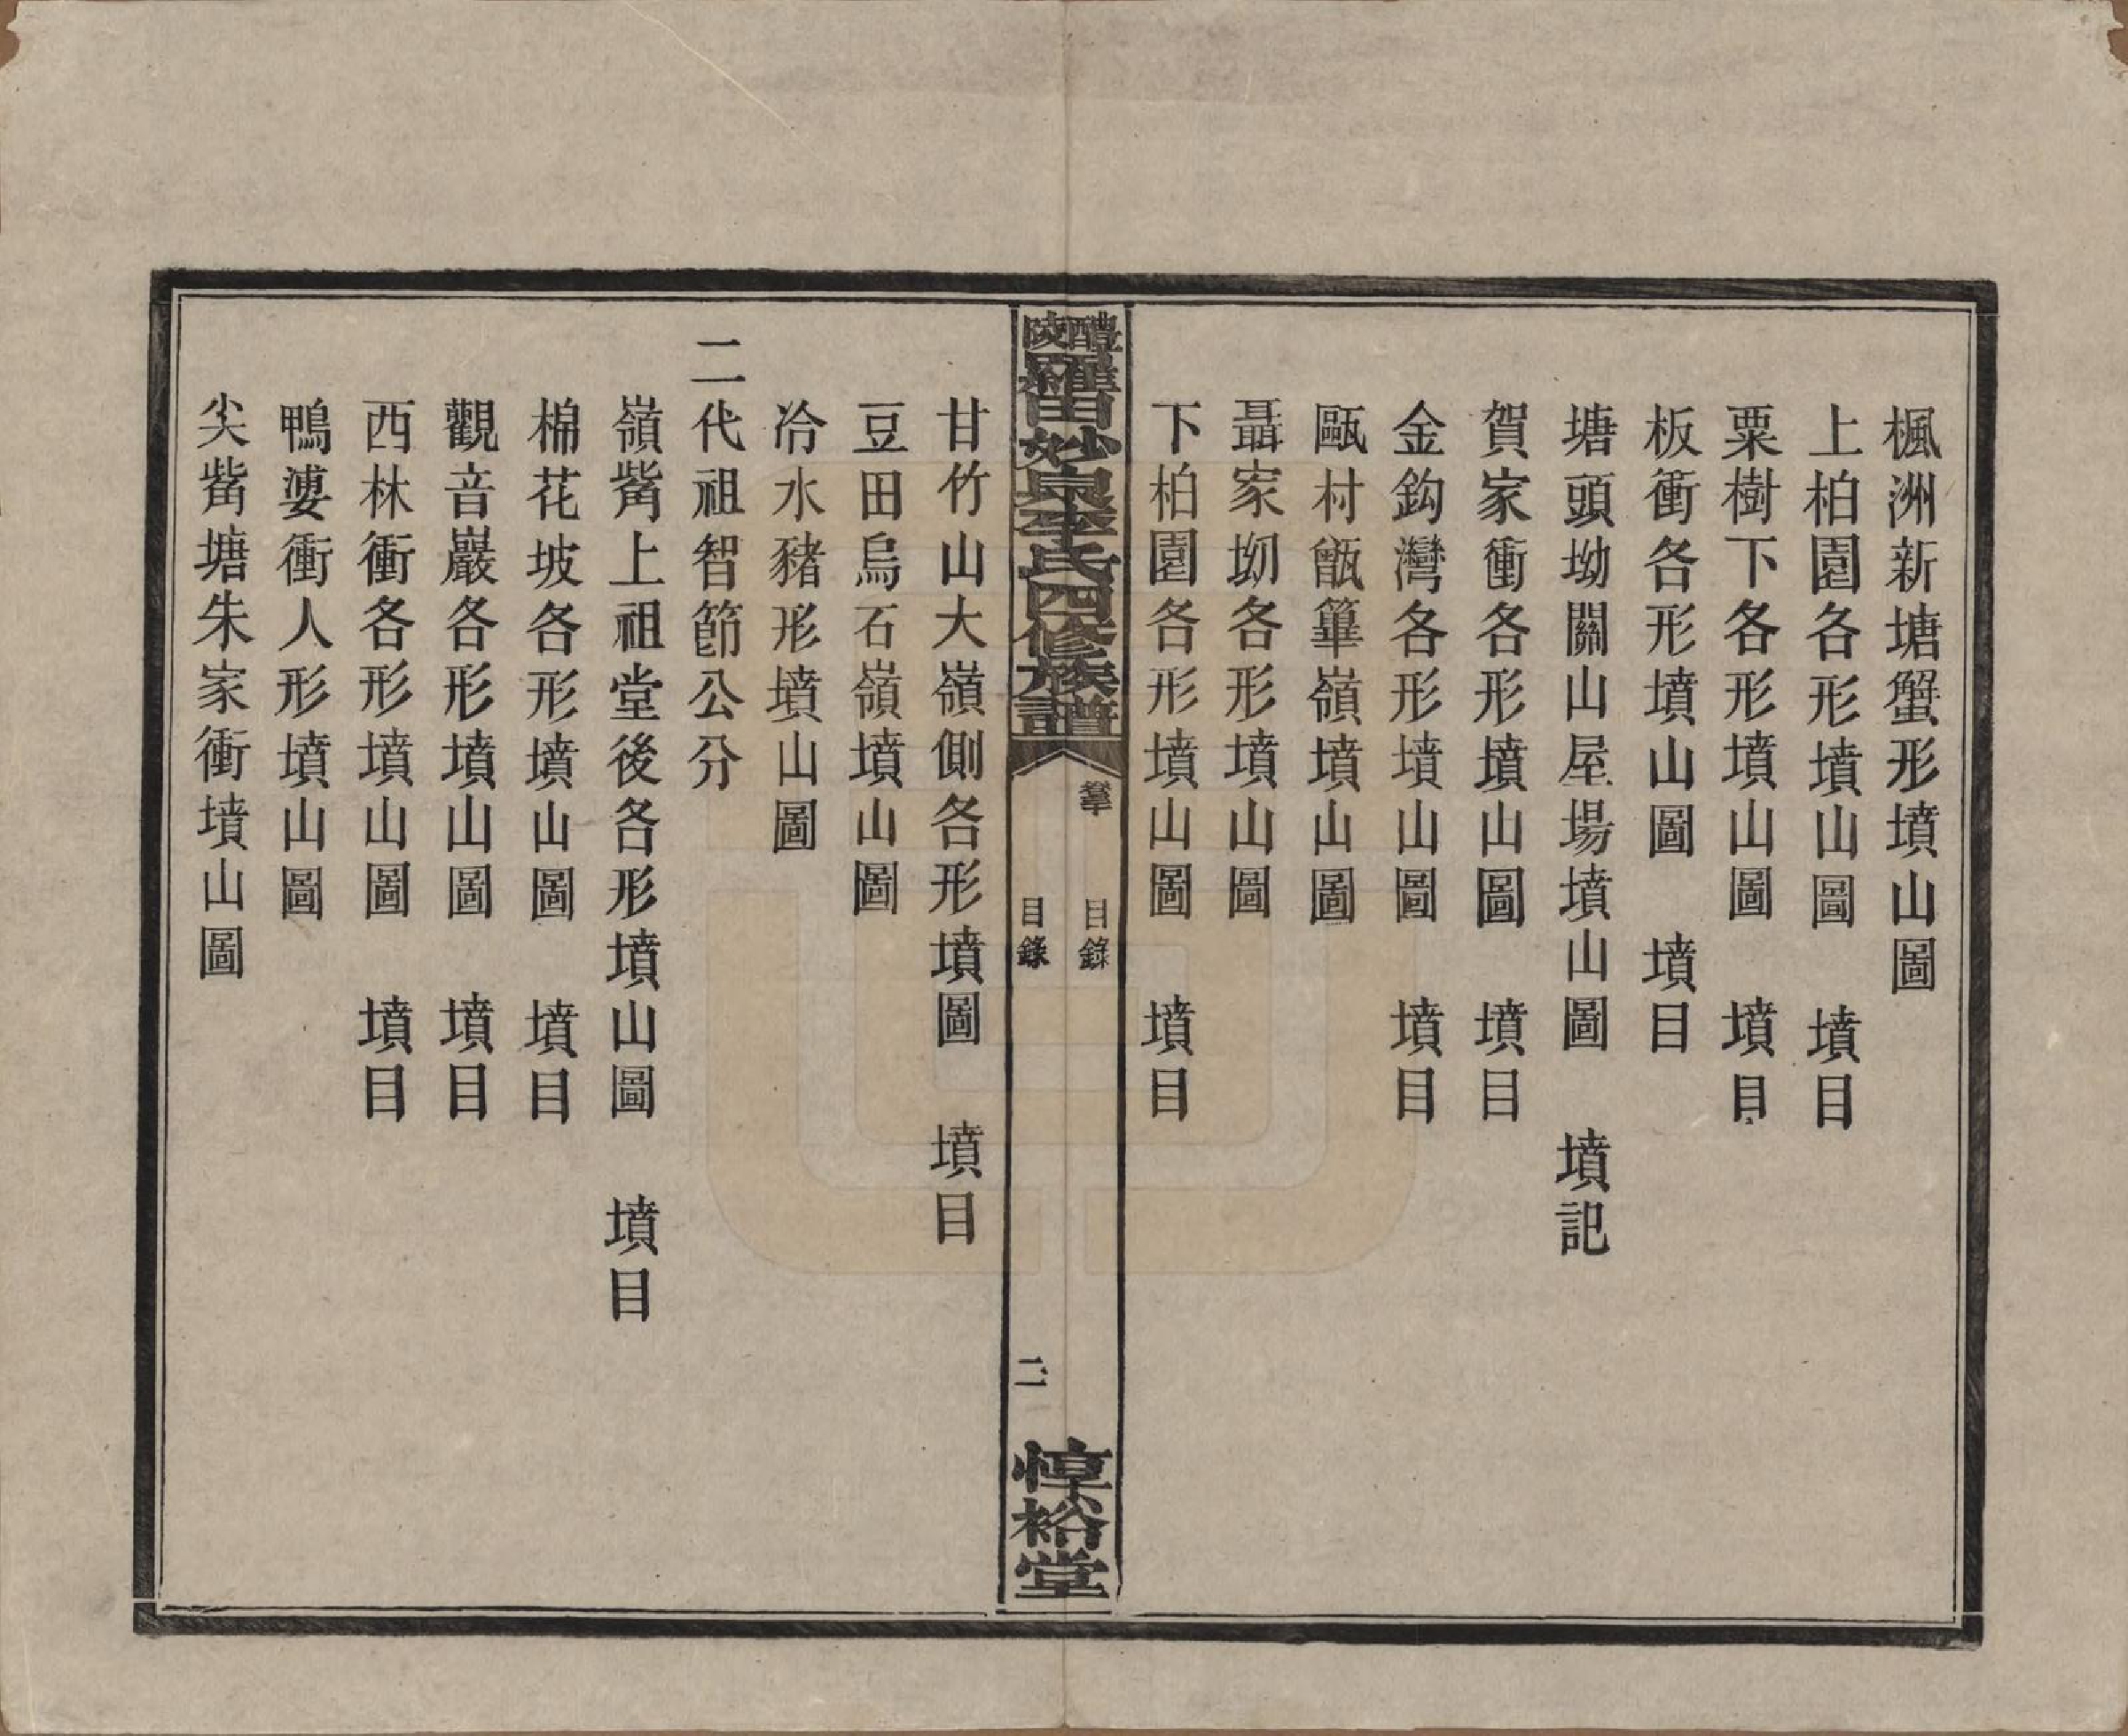 楓洲新塘蟹形墳山圖
上柏園各形墳山圖　墳目
粟樹下各形墳山圖　墳目
板衝各形墳山圖　墳目
塘頭坳關山屋場墳山圖　墳記
賀家衝各形墳山圖　墳目
金鈎灣各形墳山圖　墳目
甌村甑篳嶺墳山圖
聶家坳各形墳山圖
下柏園各形墳山圖　墳目
醴陵羅田妙泉李氏四修族譜
目錄
目錄
二
惇裕堂
甘竹山大嶺側各形墳圖　墳目
豆田烏石嶺墳山圖
冷水豬形墳山圖
二代祖智節公分
嶺觜上祖堂後各形墳山圖　墳目
棉花坡各形墳山圖　墳目
觀音巖各形墳山圖　墳目
西林衝各形墳山圖　墳目
鴨婆衝人形墳山圖
尖觜塘朱家衝墳山圖